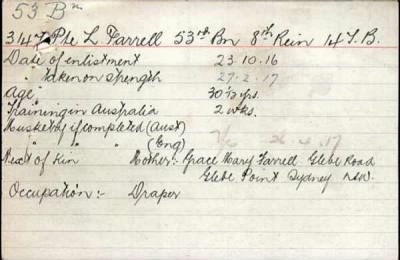 53 Bn
3147 Pte L. Farrell 53rd Bn 8th Rein 14 T.B.
Date of enlistment 23.10.16
" Taken on strength 27.2.17
Age 30 yrs.
Training in Australia 2 wks.
Musketry if completed (Aust)
" " " (Eng)
Next of Kin Mother:- Grace Mary Farrell Glebe Road
Glebe Point Sydney NSW.
Occupation:- Draper